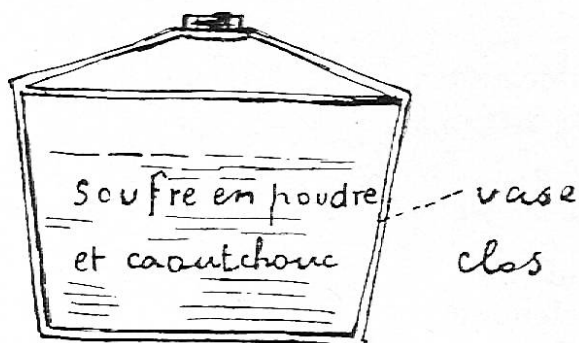 soufre en poudre
et caoutchouc
vase
clos